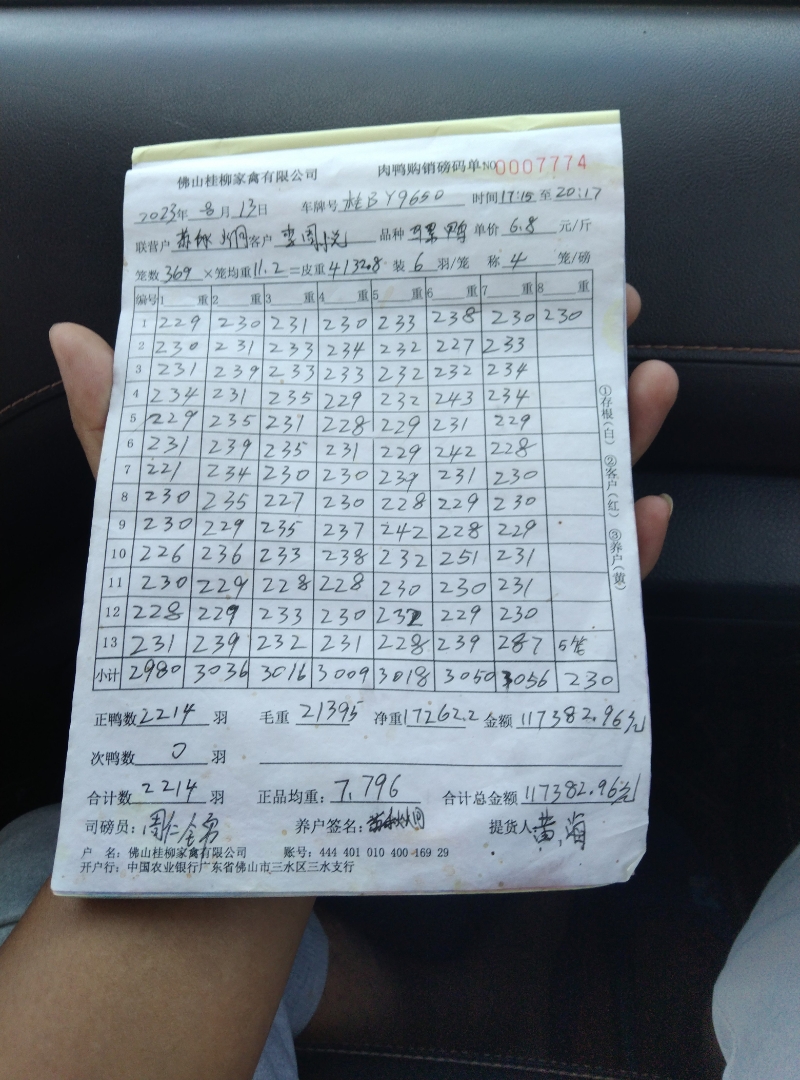 佛山桂柳家禽有限公司 肉鸭购销磅码单 NO 0007774
2023年 8月13日 车牌号 桂BY9650 时间 17:15 至 20:17
联营户 客户 品种 鸭 单价 6.8 元/斤
笼数 369 ×笼均重 11.2 =皮重 4132.8 装 6 羽/笼 称 4 笼/磅
编号 1 重 2 重 3 重 4 重 5 重 6 重 7 重 8 重
1 229 230 231 230 233 238 230 230
2 230 231 233 234 232 227 233
3 231 239 233 233 232 232 234
4 234 231 235 229 232 243 234
5 229 235 231 228 229 231 229
6 231 239 235 231 229 242 228
7 221 234 230 230 239 231 230
8 230 235 227 230 228 229 230
9 230 229 235 237 242 228 229
10 226 236 233 238 232 251 231
11 230 229 228 228 230 230 231
12 228 229 233 230 232 229 230
13 231 239 232 231 228 239 287 5笼
小计 2980 3036 3016 3009 3018 3050 3056 230
正鸭数 2214 羽 毛重 21395 净重 17262.2 金额 117382.96元
次鸭数 0 羽
合计数 2214 羽 正品均重: 7.796 合计总金额 117382.96元
司磅员: 养户签名: 提货人: 黄海
户 名: 佛山桂柳家禽有限公司 账号: 444 401 010 400 169 29
开户行: 中国农业银行广东省佛山市三水区三水支行
①存根(白) ②客户(红) ③养户(黄)